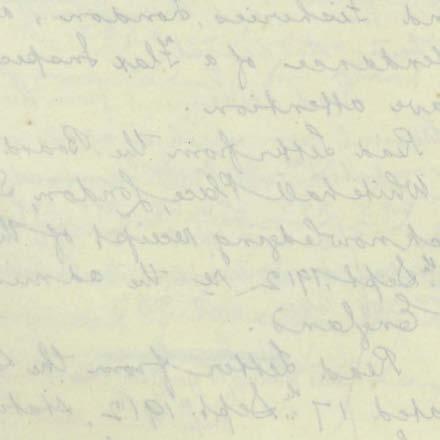 nd Fisheries, London,
tendance of a Flax Inspec
ave attention.
Read Letter from the Board
Whitehall Place, London, S
acknowledging receipt of
th Sept. 1912 re the admi
England.
Read Letter from the
ated 17th Sept. 1912, state